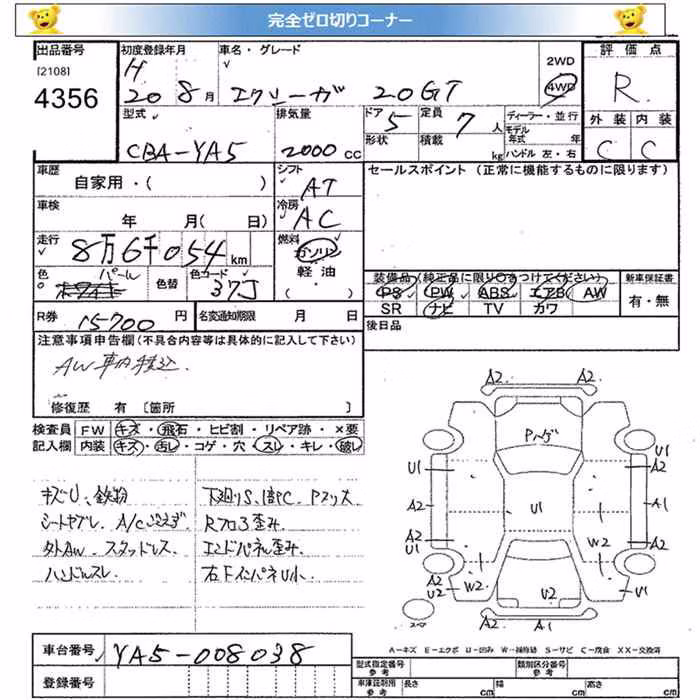 完全ゼロ切りコーナー
出品番号 初度登録年月 車名・グレード 評価点
[2108] H 2WD
4356 20 8月 エクシーガ 20GT 4WD R
型式 排気量 ドア 定員 ディーラー・並行 外装 内装
CBA-YA5 2000CC 5 7人 モデル年式 年 C C
形状 積載 kg ハンドル 左・右
車歴 シフト セールスポイント (正常に機能するものに限ります)
自家用・( ) AT
車検 冷房
年 月( 日) AC
走行 燃料
8万6千054km ガソリン
色 パール 色替 色コード 37J 軽油 装備品(純正品に限り○をつけてください) 新車保証書
( ) PS PW ABS エアB AW 有・無
SR ナビ TV カワ
R券 15700円 名変通知期限 月 日 後日品
注意事項申告欄(不具合内容等は具体的に記入して下さい)
AW車内積込
修復歴 有 〔箇所 〕
検査員 FW キズ・飛石・ヒビ割・リペア跡・×要
記入欄 内装 キズ・汚レ・コゲ・穴・スレ・キレ・破レ
キズU、鉄粉 下廻りS、
シートキズレ、A/C
外AW、スタッドレス エンドパネル歪み
ハンドルスレ
A2 A2
U1 U1
A2
U1 A1
A2 A2
U1 W2
A2 A2
U2 W2 U2 U1
A2 A1
A-キズ E-エクボ U-凹み W-補修跡 S-サビ C-腐食 XX-交換済
車台番号 YA5-008038
登録番号
型式指定番号 類別区分番号
車庫証明用参考 長さ cm 幅 cm 高さ cm